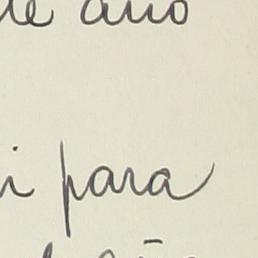 te ano
i para